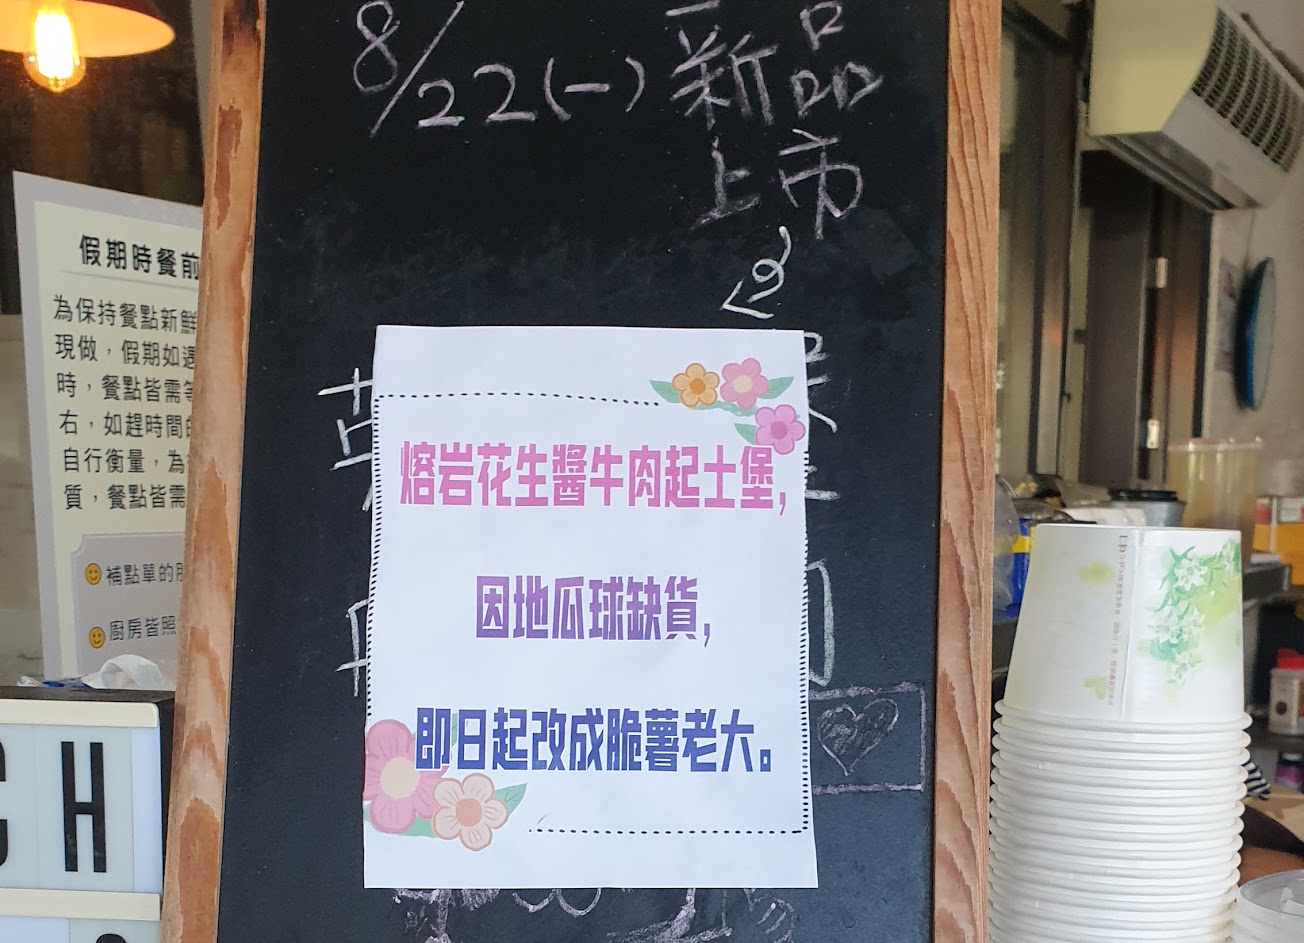 8/22(一)新品
上市
熔岩花生醬牛肉起士堡,
因地瓜球缺貨,
即日起改成脆薯老大。
假期時餐前
為保持餐點新鮮
現做，假期如遇
時，餐點皆需等
右，如趕時間的
自行衡量，為
質，餐點皆需
補點單的朋
廚房皆照
CH